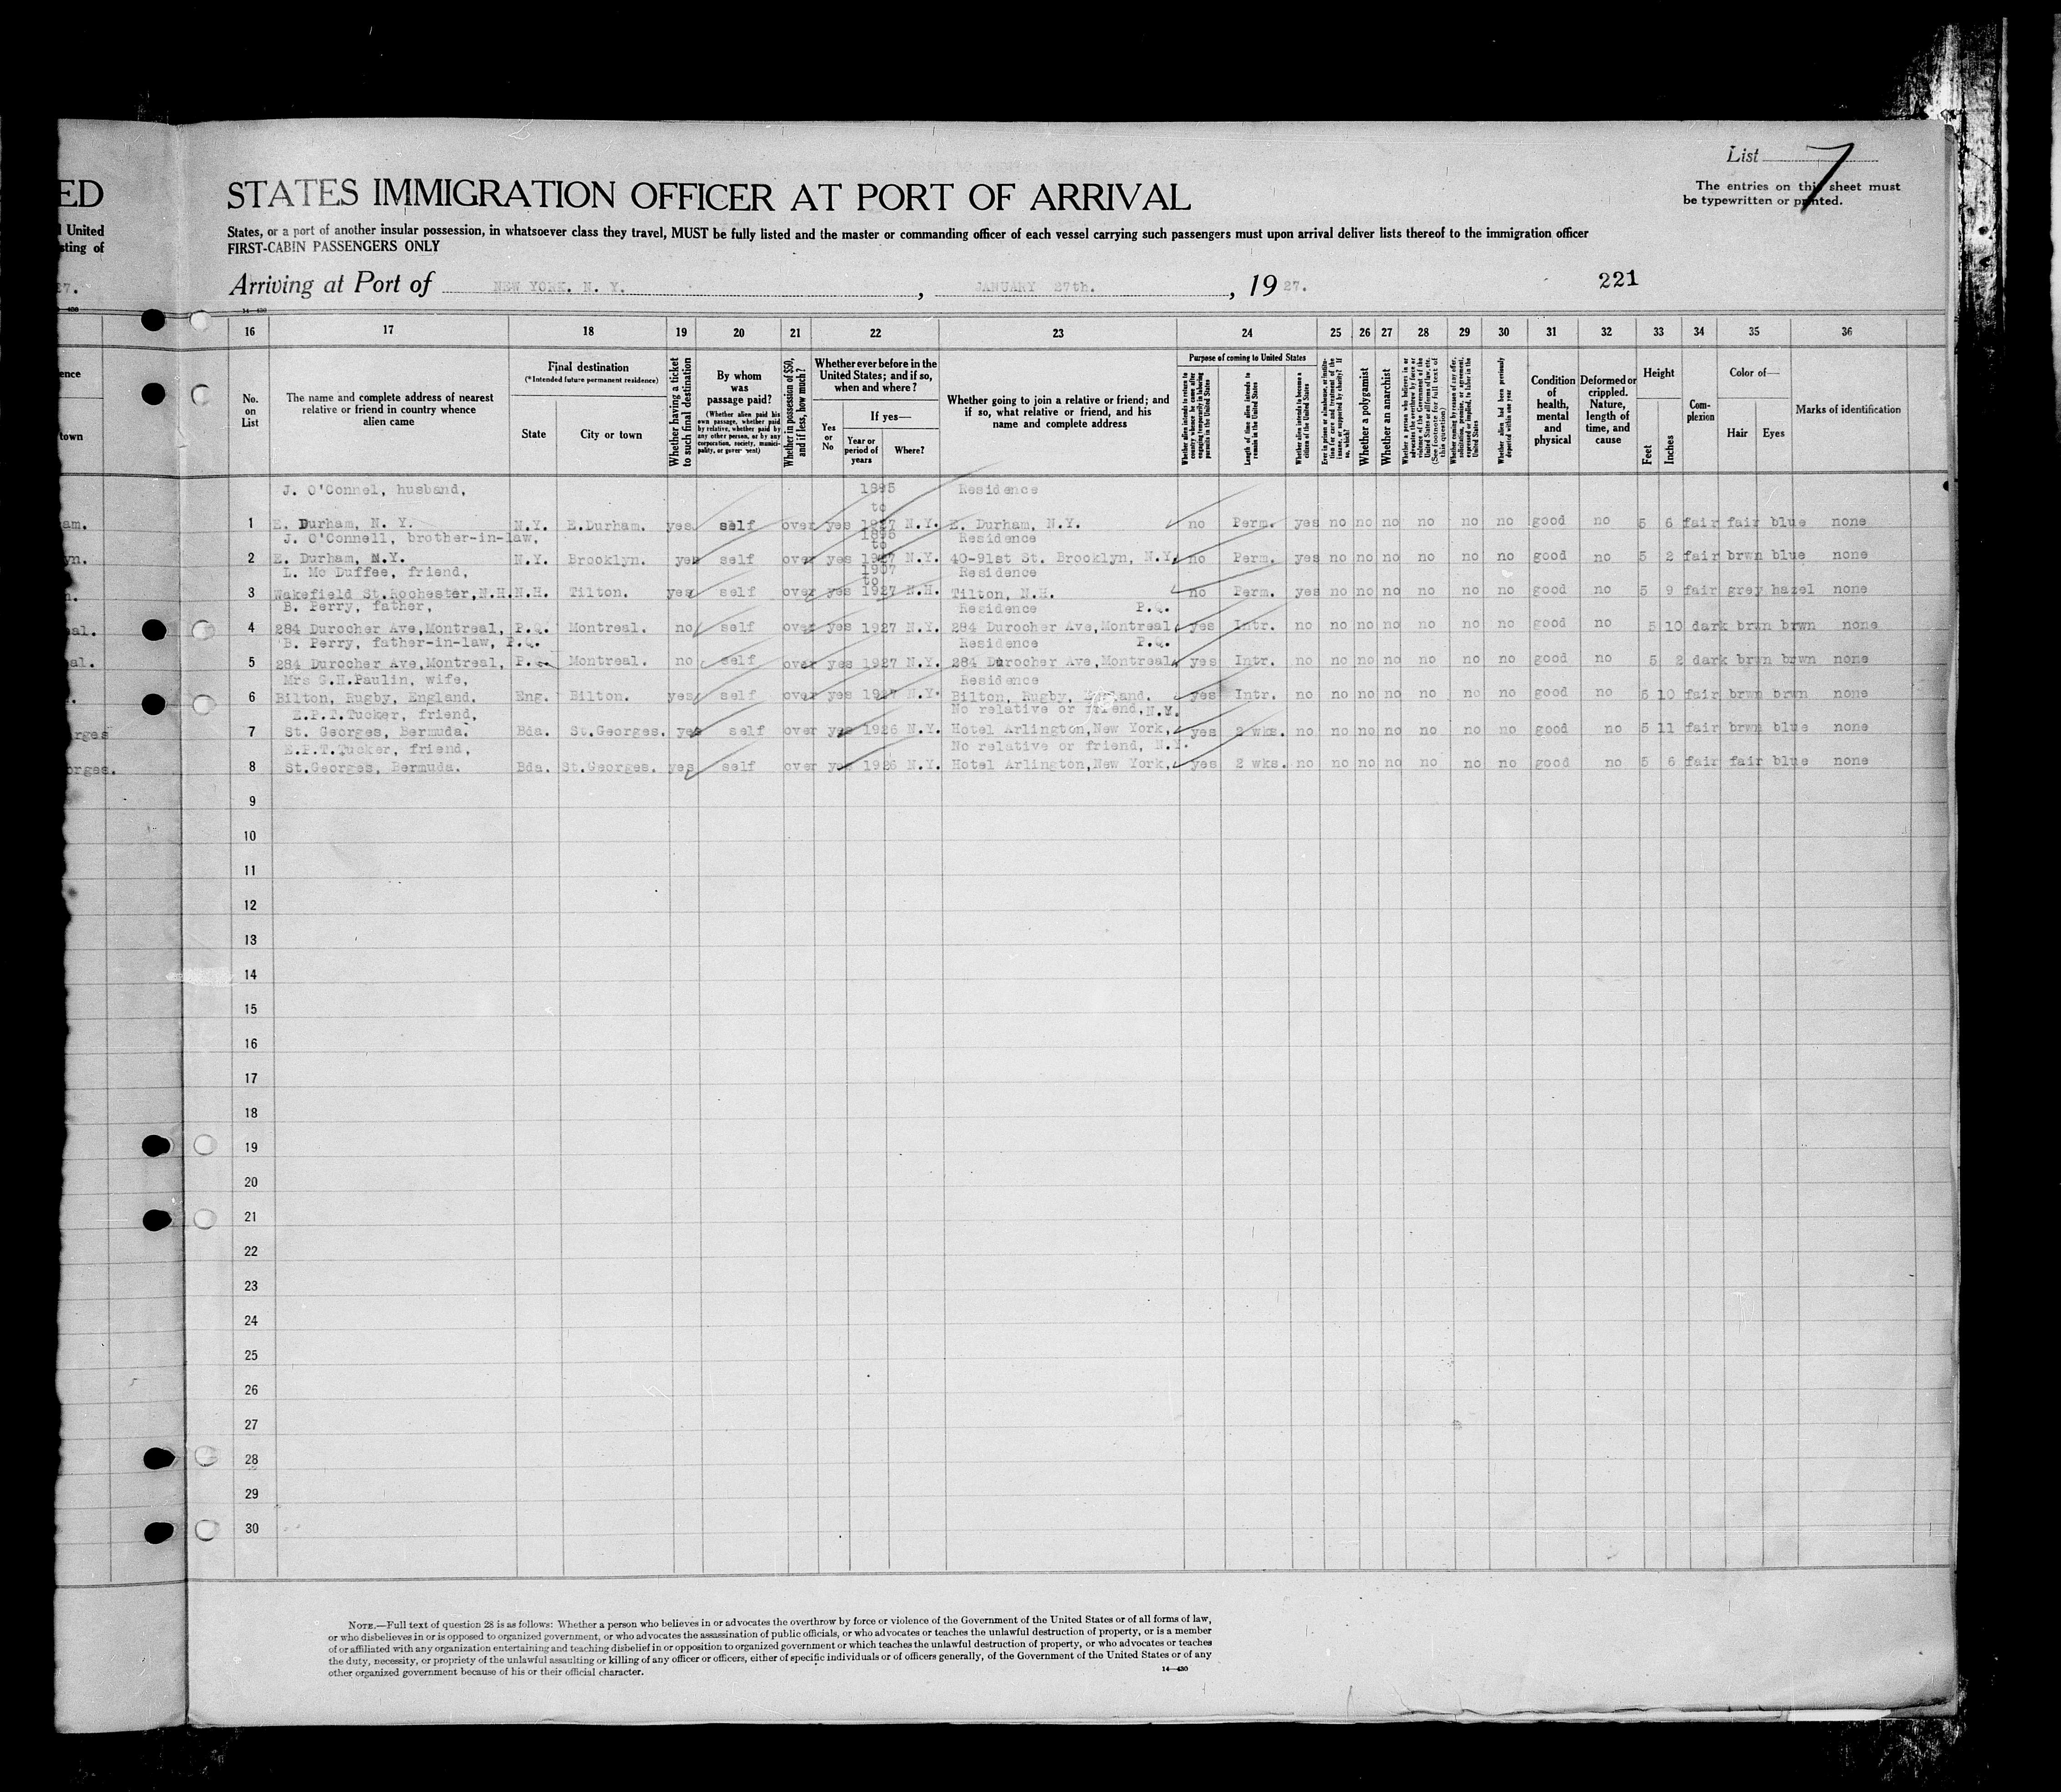 List 7
The entries on this sheet must
be typewritten or printed.
ED
STATES IMMIGRATION OFFICER AT PORT OF ARRIVAL
United
sting of
States, or a port of another insular possession, in whatsoever class they travel, MUST be fully listed and the master or commanding officer of each vessel carrying such passengers must upon arrival deliver lists thereof to the immigration officer
FIRST-CABIN PASSENGERS ONLY
Arriving at Port of NEW YORK. N. Y. , JANUARY 27th. , 19 27.
221
14—430
16 17 18 19 20 21 22 23 24 25 26 27 28 29 30 31 32 33 34 35 36
No.
on
List
The name and complete address of nearest
relative or friend in country whence
alien came
Final destination
(*Intended future permanent residence)
State City or town
Whether having a ticket
to such final destination
By whom
was
passage paid?
(Whether alien paid his
own passage, whether paid
by relative, whether paid by
any other person, or by any
corporation, society, munici-
pality, or government)
Whether in possession of $50,
and if less, how much?
Whether ever before in the
United States; and if so,
when and where?
Yes
or
No
If yes—
Year or
period of
years
Where?
Whether going to join a relative or friend; and
if so, what relative or friend, and his
name and complete address
Purpose of coming to United States
Whether alien intends to return to
country whence he came after
engaging temporarily in laboring
pursuits in the United States
Length of time alien intends to
remain in the United States
Whether alien intends to become a
citizen of the United States
Ever in prison or almshouse, or institu-
tion for care and treatment of the
insane, or supported by charity? If
so, which?
Whether a polygamist
Whether an anarchist
Whether a person who believes in or
advocates the overthrow by force or
violence of the Government of the
United States or all forms of law, etc.
(See footnote for full text of
this question)
Whether coming by reason of any offer,
solicitation, promise, or agreement,
expressed or implied, to labor in the
United States
Whether alien had been previously
deported within one year
Condition
of
health,
mental
and
physical
Deformed or
crippled.
Nature,
length of
time, and
cause
Height
Feet
Inches
Com-
plexion
Color of—
Hair Eyes
Marks of identification
J. O'Connel, husband, 1895 Residence
to
1 E. Durham, N. Y. N.Y. E.Durham. yes self over yes 1927 N.Y. E. Durham, N.Y. no Perm. yes no no no no no no good no 5 6 fair fair blue none
J. O'Connell, brother-in-law, 1895 Residence
to
2 E. Durham, N.Y. N.Y. Brooklyn. yes self over yes 1927 N.Y. 40-91st St. Brooklyn, N.Y. no Perm. yes no no no no no no good no 5 2 fair brwn blue none
L. Mc Duffee, friend, 1907 Residence
to
3 Wakefield St.Rochester,N.H. N.H. Tilton. yes self over yes 1927 N.H. Tilton, N.H. no Perm. yes no no no no no no good no 5 9 fair grey hazel none
B. Perry, father, Residence P.Q.
4 284 Durocher Ave,Montreal, P.Q. Montreal. no self over yes 1927 N.Y. 284 Durocher Ave,Montreal, yes Intr. no no no no no no no good no 5 10 dark brwn brwn none
B. Perry, father-in-law, P.Q. Residence P.Q.
5 284 Durocher Ave,Montreal, P.Q. Montreal. no self over yes 1927 N.Y. 284 Durocher Ave,Montreal, yes Intr. no no no no no no no good no 5 2 dark brwn brwn none
Mrs G.H.Paulin, wife, Residence
6 Bilton, Rugby, England. Eng. Bilton. yes self over yes 1927 N.Y. Bilton, Rugby, England. yes Intr. no no no no no no no good no 5 10 fair brwn brwn none
E.P.T.Tucker, friend, No relative or friend, N.Y.
7 St. Georges, Bermuda. Bda. St.Georges. yes self over yes 1926 N.Y. Hotel Arlington,New York, yes 2 wks. no no no no no no no good no 5 11 fair brwn blue none
E.P.T.Tucker, friend, No relative or friend, N.Y.
8 St.Georges, Bermuda. Bda. St.Georges. yes self over yes 1926 N.Y. Hotel Arlington,New York, yes 2 wks. no no no no no no no good no 5 6 fair fair blue none
9
10
11
12
13
14
15
16
17
18
19
20
21
22
23
24
25
26
27
28
29
30
NOTE.—Full text of question 28 is as follows: Whether a person who believes in or advocates the overthrow by force or violence of the Government of the United States or of all forms of law,
or who disbelieves in or is opposed to organized government, or who advocates the assassination of public officials, or who advocates or teaches the unlawful destruction of property, or is a member
of or affiliated with any organization entertaining and teaching disbelief in or opposition to organized government or which teaches the unlawful destruction of property, or who advocates or teaches
the duty, necessity, or propriety of the unlawful assaulting or killing of any officer or officers, either of specific individuals or of officers generally, of the Government of the United States or of any
other organized government because of his or their official character.
14—430